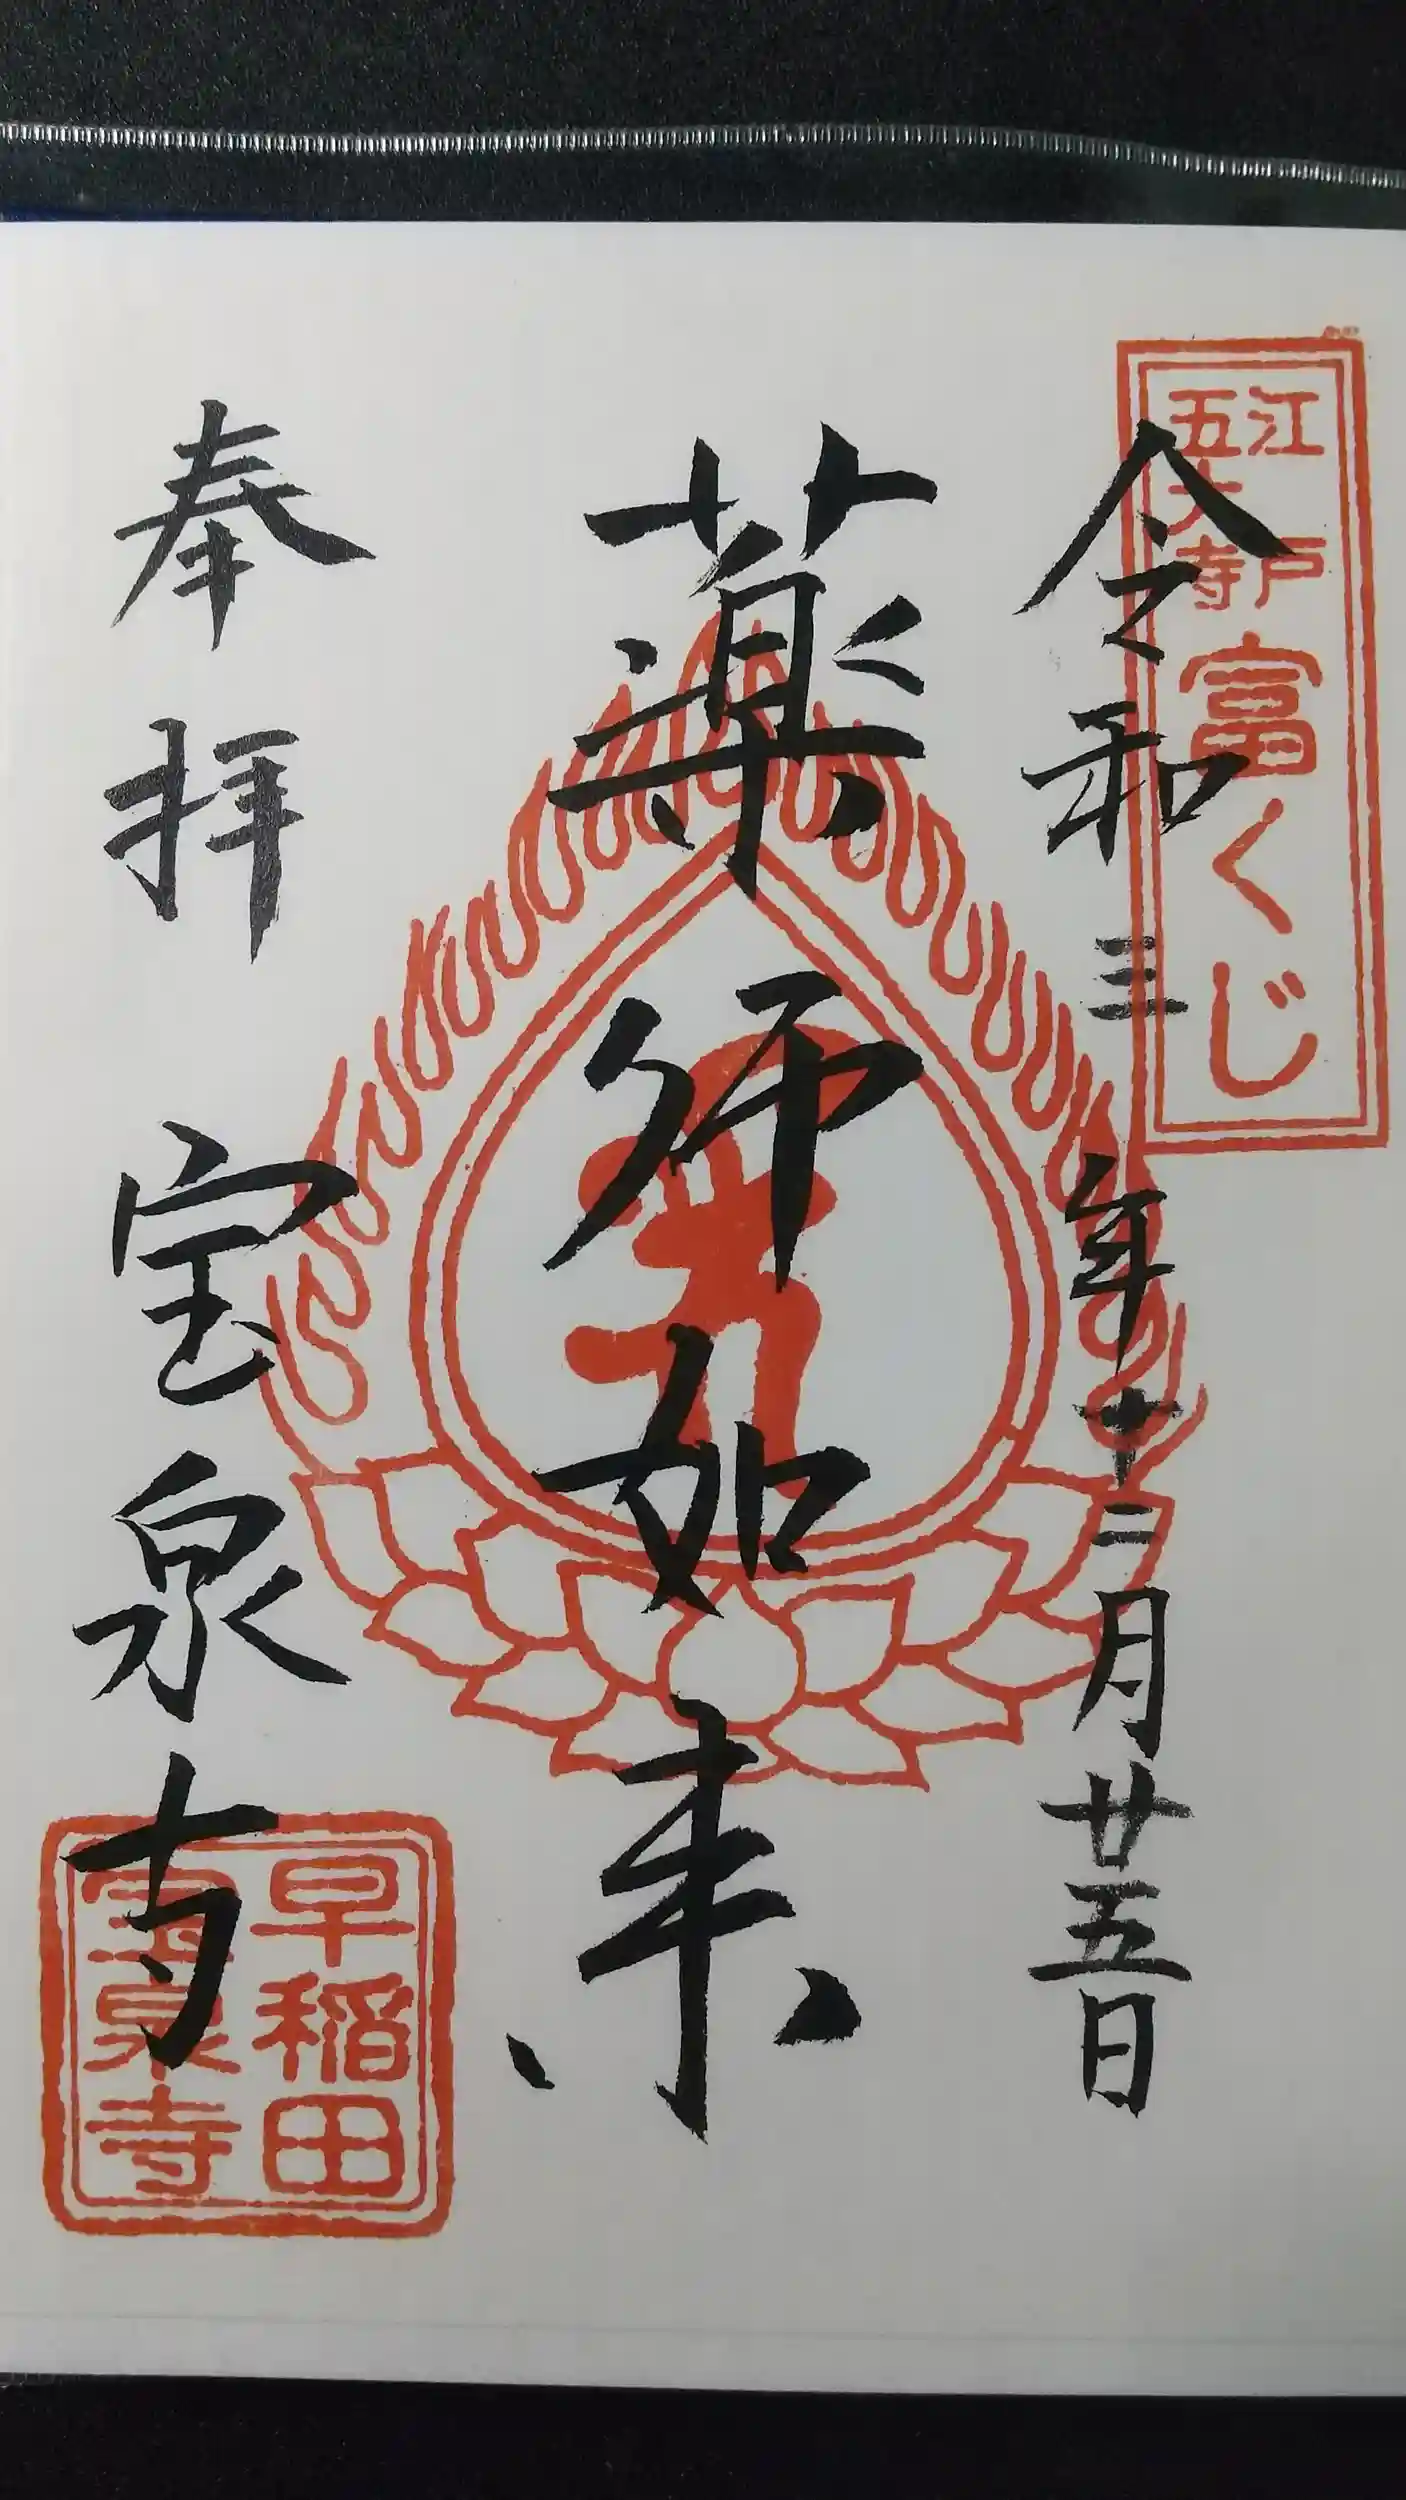 江戸
五大寺
富くじ
令和三年十二月廿五日
薬師如来
奉拝 宝泉寺
早稲田
寳泉寺